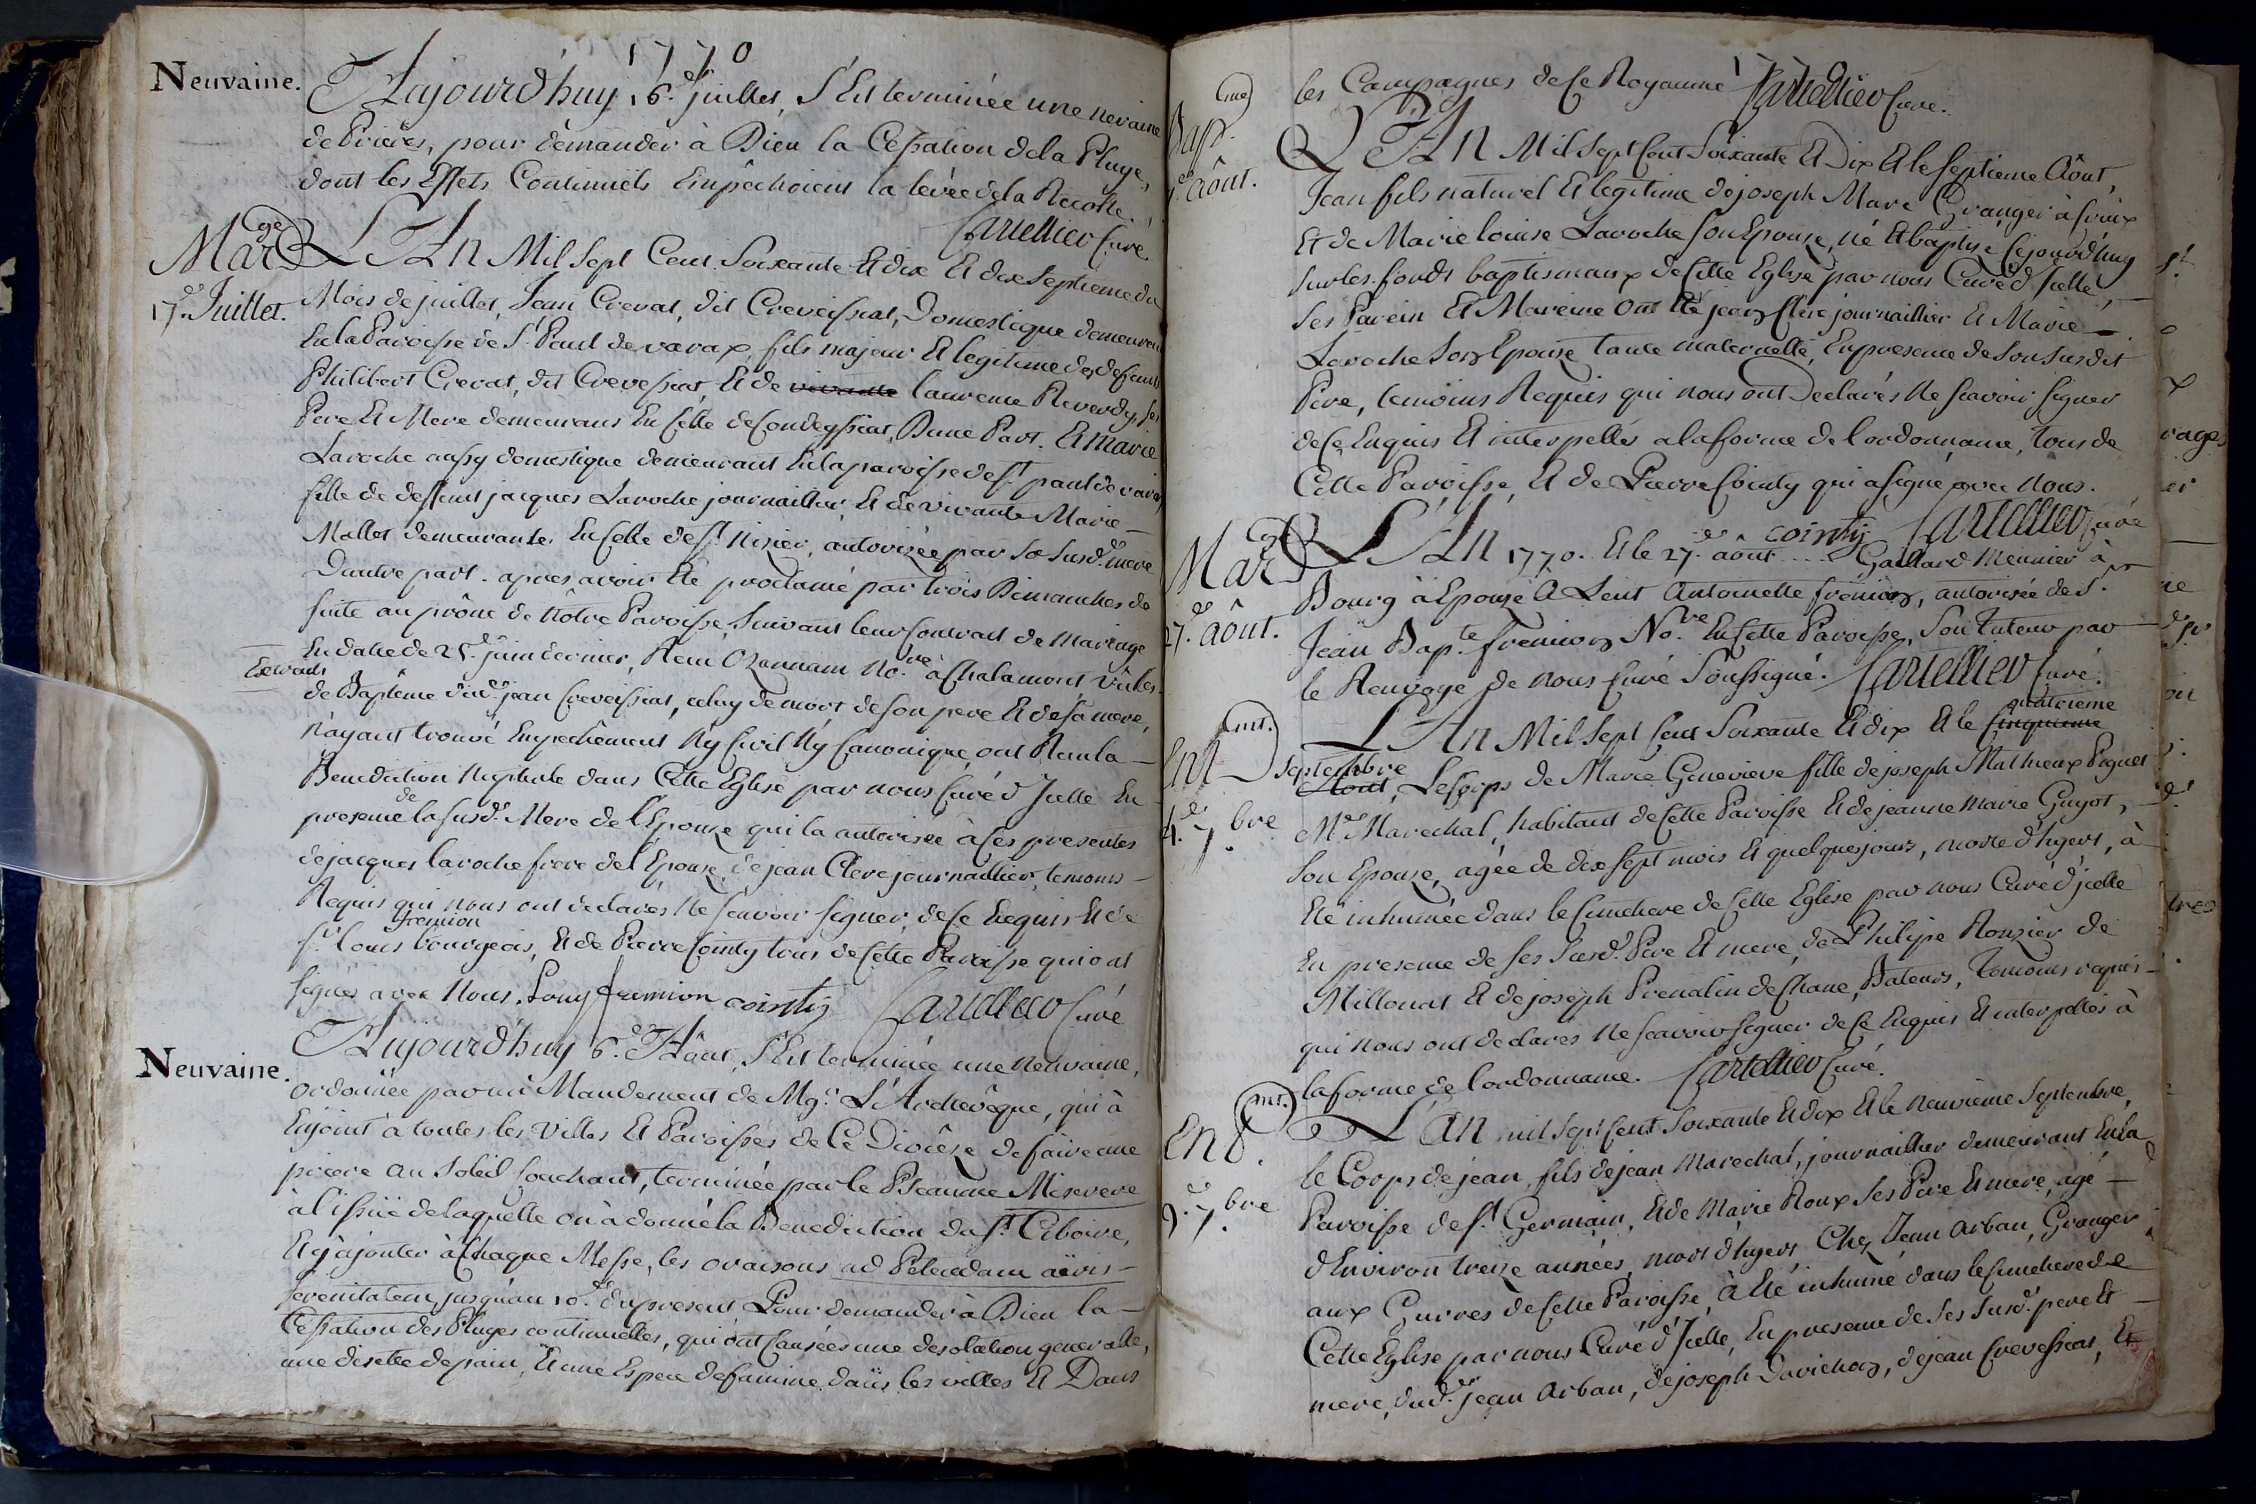 1770
Neuvaine.
Aujourd'huy 16.e juillet, s'Est terminée une nevaine
de Prieres, pour demander à Dieu la Cessation de la Pluye,
dont les Effets Continuels Empêchoient la levée de la Recolte.
Cartellier Curé.
Mar ge
17.e Juillet.
L'An Mil Sept Cent Soixante Et dix Et dix Septieme du
Mois de juillet, Jean Crevat, dit Creveissiat, Domestique demeurant
En la Paroisse de St. Paul de varax, fils majeur Et legitime des deffunts
Philibert Crevat, dit Crevessiat, Et de vivante laurence Reverdy, ses
Pere Et Mere demeurans En Celle de Condeyssiat, Dune Part. Et Marie
Laroche aussy domestique demeurant En la paroisse de St. paul de varax,
fille de deffunt jacques Laroche journaillier Et de vivante Marie
Mallet demeurante En Celle de St. Nizier, autorizée par Sa Susd.e mere
Dautre part. apres avoir Eté proclamé par trois Dimanches de
suite au prône de Nôtre Paroisse, Suivant leur Contract de Mariage
En datte de 25.e juin dernier, Reçu Ozannam No.re à Chalamont Vû les
Extraits
de Baptême dud. jean Creveissiat, celuy de mort de son pere Et de sa mere,
N'ayant trouvé Empechement Ny Civil Ny Canonique, ont Recu la
Benediction Nuptiale dans Cette Eglise par nous Curé d'Icelle En
presence de la susd.e Mere de l'Epouze qui la autorisée à Ces presentes
de jacques laroche frere de l'Epouze, de jean Clere journaillier, temoins
Requis qui nous ont declarés Ne Scavoir Signer, de Ce Enquis Et de
fremion
Sr. louis bourgeois, Et de Pierre Cointy tous de Cette Paroisse qui ont
Signés avec Nous. Louy fremion cointy Cartellier Curé
Neuvaine.
Aujourd'huy 6.e Août, s'Est terminée une Neuvaine,
ordonnée par un Mandement de Mgr. L'Archevêque, qui à
Enjoint à toutes les Villes Et Paroisses de Ce Diocèse de faire une
priere au Soleil Couchant, terminée par le Pseaume Miserere
à l'issuë de laquelle on à donné la Benediction du St. Ciboire,
Et d'ajouter à Chaque Messe, les oraisons ad Petendam aëris
serenitatem, jusqu'au 10.e du present Pour demander à Dieu la
Cessation des Pluyes continuelles, qui ont Causées une desolation generalle,
une disette de pain, Et une Espece de famine dans les villes Et Dans
1770
les Campagnes de Ce Royaume Cartellier Cure.
Bap. me
août.
L'An Mil Sept Cent Soixante Et Dix Et le Septieme Août,
Jean fils naturel Et legitime de joseph Marc Granger à
Et de Marie louise Laroche son Epouze, né Et baptisé Cejourd'huy
sur les fonds baptismaux de Cette Eglise par nous Curé d'Icelle,
Ses Parein Et Mareine ont Eté jean Clere journaillier Et Marie
Laroche son Epouze tante maternelle, En presence de Son Susdit
Pere, temoins Requis qui nous ont Declarés Ne Scavoir Signer
de Ce Enquis Et interpellés a la forme de l'ordonnance, tous de
Cette Paroisse, Et de Pierre Cointy qui a signé avec Nous.
cointy Cartellier Curé
Mar ge
27.e août.
L'An 1770. Et le 27.e août .... Gaillard Meunier à
Bourg à Epouzé A Lent Antoinette fremion, autorisée de Sr.
Jean Bap.te fremion No.re En Cette Paroisse, Son Tuteur par
le Renvoye de Nous Curé Soussigné. Cartellier Curé.
Ent. mt.
4.e 7.bre
L'An Mil Sept Cent Soixante Et dix Et le Cinquieme
quatrieme
Septembre
Aout, Le Corps de Marie Genevieve fille de joseph Mathieux Piquet
M.e Marechal, habitant de Cette Paroisse Et de jeanne Marie Guyot,
Son Epouze, agée de dix Sept mois Et quelques jours, morte d'hyert, à
Eté inhumée dans le Cimetiere de Cette Eglise par nous Curé d'jcelle
En presence de Ses Susd. Pere Et mere, de Philipe Ronzier de
Millonat Et de joseph Prenalin de Chane, Bateurs, Temoins requis
qui nous ont declares Ne Scavoir Signer de Ce Enquis Et interpellés à
la forme de l'ordonnance. Cartellier Curé.
Ent. mt.
9.e 7.bre
L'An mil Sept Cent Soixante Et dix Et le Neuvieme Septembre,
le Corps de jean, fils de jean Marechal, journaillier demeurant En la
Paroisse de St. Germain, Et de Marie Roux Ses Pere Et mere, agé
d'Environ treize années, mort d'hyert, Chez Jean Arban, Granger
aux Curres de Cette Paroisse, à Eté inhumé dans le Cimetiere de
Cette Eglise par nous Curé d'Icelle, En presence de Ses Susd. pere Et
mere, dud. Jean Arban, de joseph Davichon, de jean Crevessiat, Et